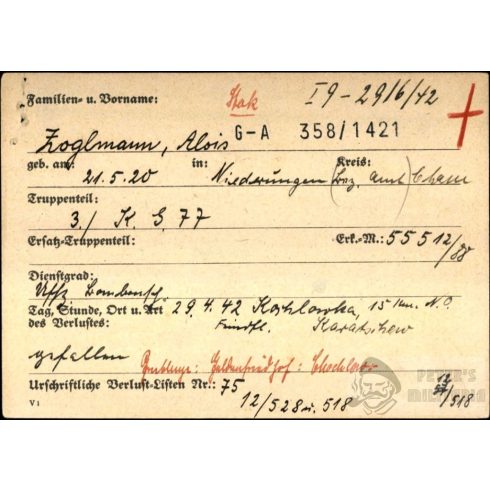 Familien- u. Vorname: Stak I 9 - 2916/42
G-A 358/1421
Zoglmann, Alois
geb. am: in: Kreis:
21.5.20 Niederrungen (Bez. Amt) Cham
Truppenteil:
3./ K G 77
Ersatz-Truppenteil: Erk.-M.: 55512/88
Dienstgrad:
Uffz Bombensch
Tag, Stunde, Ort u. Art 29.4.42 Kozlowka, 15 km. N.O.
des Verlustes: Feindfl. Karatschew
gefallen Heldenfriedhof:
Urschriftliche Verlust-Listen Nr.: 75
12/528 u. 518
/518
V 1
PETER'S
MILITARIA